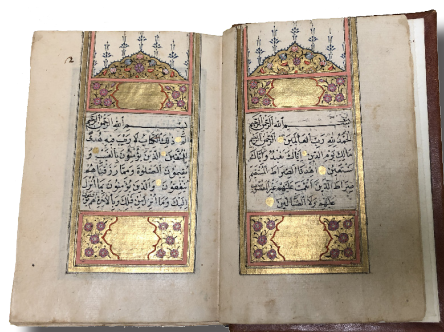 بسم الله الرحمن الرحيم
الحمد لله رب العالمين الرحمن الرحيم
مالك يوم الدين اياك نعبد واياك
نستعين اهدنا الصراط المستقيم
صراط الذين انعمت عليهم غير المغضوب
عليهم ولا الضالين
بسم الله الرحمن الرحيم
الم ذلك الكتاب لا ريب فيه هدى
للمتقين الذين يؤمنون بالغيب و
يقيمون الصلوة ومما رزقناهم
ينفقون والذين يؤمنون بما انزل
اليك وما انزل من قبلك وبالآخرة هم